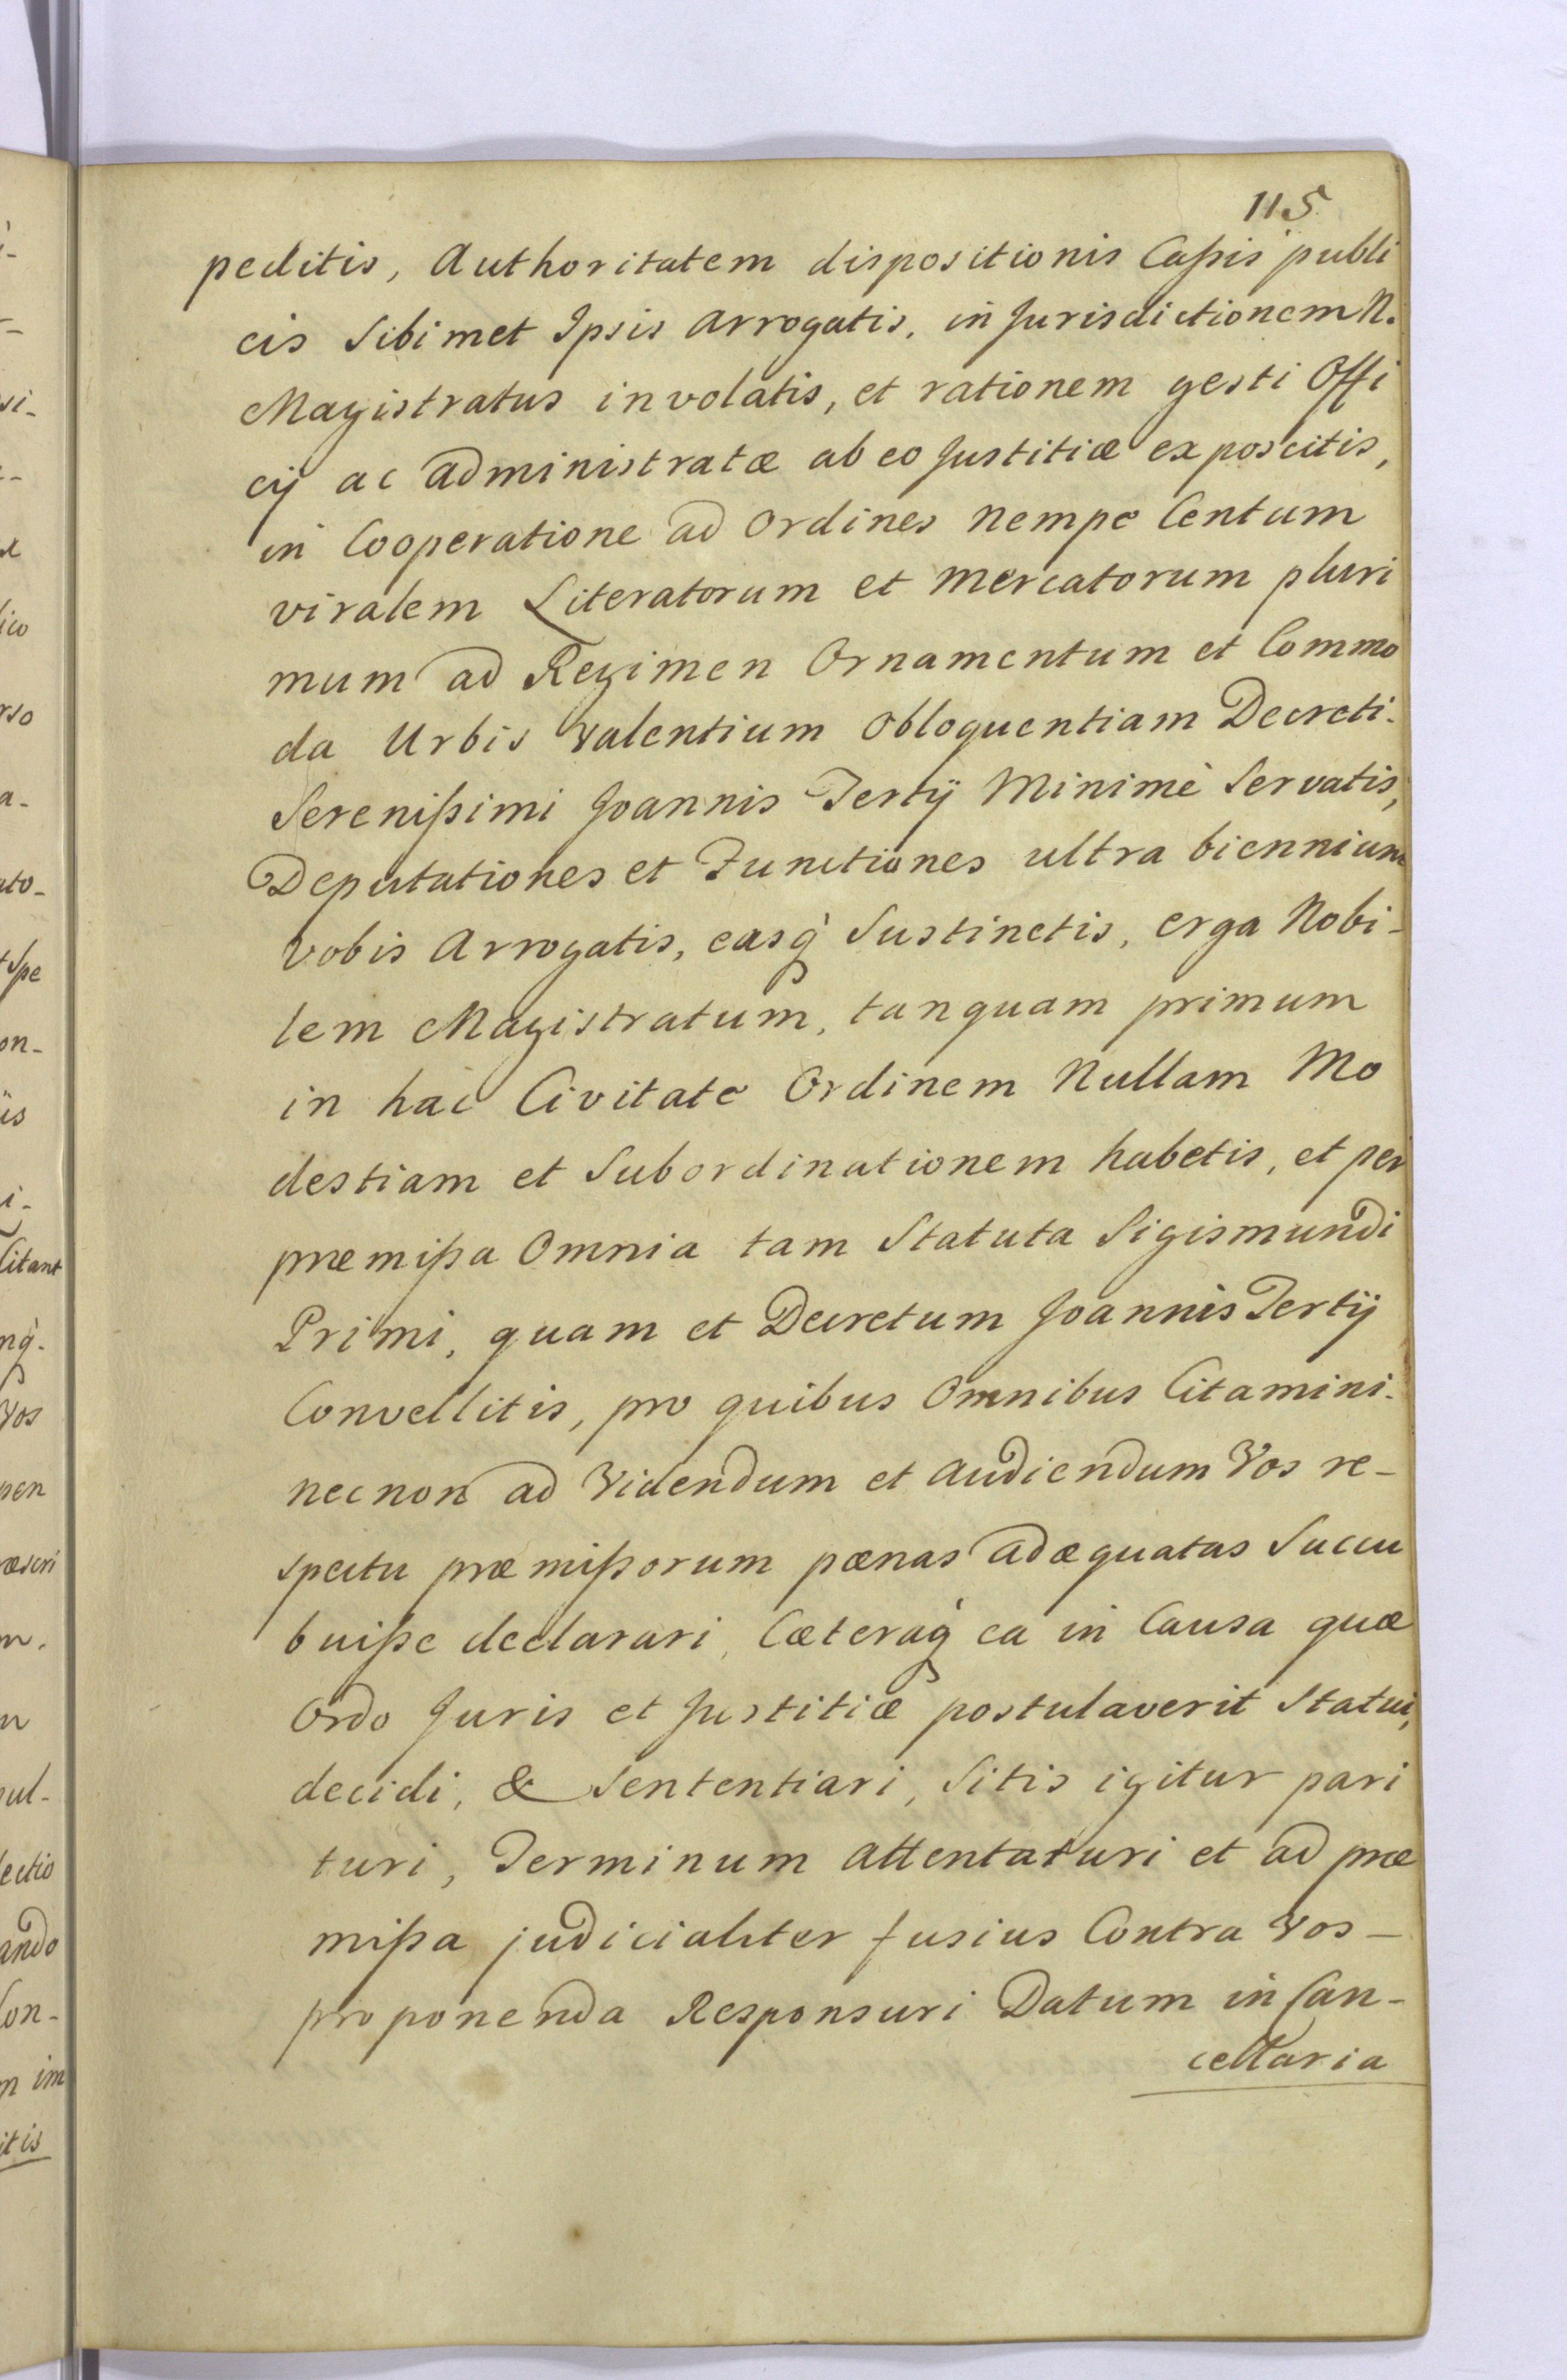 115
peditis, Authoritatem dispositionis Caſsis publi
cis Sibimet Ipsis arrogatis, in Jurisdictionem N.
Magistratus involatis, et rationem gesti Offi
cÿ ac administratæ ab eo Justitiæ exposcitis,
in Cooperatione ad Ordines nempe Centum
viralem Literatorum et mercatorum pluri
mum ad Regimen Ornamentum et Commo
da Urbis valentium obloquentiam Decreti.
Sereniſsimi Joannis Tertÿ Minimè Servatis,
Deputationes et Functiones ultra biennium
vobis Arrogatis, easq̀ Sustinetis, erga Nobi-
lem Magistratum, tanquam primum
in hac Civitate Ordinem Nullam Mo
destiam et Subordinationem habetis, et per
præmiſsa Omnia tam Statuta Sigismundi
Primi, quam et Decretum Joannis Tertÿ
Convellitis, pro quibus Omnibus Citamini.
necnon ad Videndum et audiendum Vos re-
spectu præmiſsorum pœnas adæquatas Succu
buiſse declarari, Cæteraq̀ ea in Causa quæ
Ordo Juris et Justitiæ postulaverit Statui,
decidi, & Sententiari, Sitis igitur pari
turi, Terminum attentaturi et ad præ
miſsa judicialiter fusius Contra Vos -
proponenda Responsuri Datum in Can-
cellaria
si-
lico
rso
a-
ato-
tSpe
on-
ùs
i-
Citant
nq̀.
Vos
pen
ræscri
m.
n
pul-
lectio
ando
Con-
m im
itis